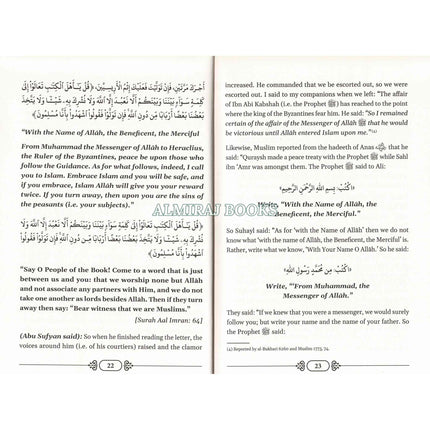 أَجْرَكَ مَرَّتَيْنِ، فَإِنْ تَوَلَّيْتَ فَعَلَيْكَ إِثْمُ الْأَرِيسِيِّينَ، ﴿قُلْ يَٰٓأَهْلَ ٱلْكِتَٰبِ تَعَالَوْا۟ إِلَىٰ
كَلِمَةٍ سَوَآءٍۭ بَيْنَنَا وَبَيْنَكُمْ أَلَّا نَعْبُدَ إِلَّا ٱللَّهَ وَلَا نُشْرِكَ بِهِۦ شَيْـًٔا وَلَا يَتَّخِذَ
بَعْضُنَا بَعْضًا أَرْبَابًا مِّن دُونِ ٱللَّهِ فَإِن تَوَلَّوْا۟ فَقُولُوا۟ ٱشْهَدُوا۟ بِأَنَّا مُسْلِمُونَ﴾
"With the Name of Allāh, the Beneficent, the Merciful
From Muhammad the Messenger of Allāh to Heraclius,
the Ruler of the Byzantines, peace be upon those who
follow the Guidance. As for what follows, indeed, I call
you to Islam. Embrace Islam and you will be safe, and
if you embrace, Islam Allāh will give you your reward
twice. If you turn away, then upon you are the sins of
the peasants (i.e. your subjects)."
﴿قُلْ يَٰٓأَهْلَ ٱلْكِتَٰبِ تَعَالَوْا۟ إِلَىٰ كَلِمَةٍ سَوَآءٍۭ بَيْنَنَا وَبَيْنَكُمْ أَلَّا نَعْبُدَ إِلَّا ٱللَّهَ وَلَا
نُشْرِكَ بِهِۦ شَيْـًٔا وَلَا يَتَّخِذَ بَعْضُنَا بَعْضًا أَرْبَابًا مِّن دُونِ ٱللَّهِ فَإِن تَوَلَّوْا۟ فَقُولُوا۟
ٱشْهَدُوا۟ بِأَنَّا مُسْلِمُونَ﴾
"Say O People of the Book! Come to a word that is just
between us and you: that we worship none but Allah
and not associate any partners with Him, and we do not
take one another as lords besides Allah. Then if they turn
away then say: "Bear witness that we are Muslims."
[Surah Aal Imran: 64]
(Abu Sufyan said): So when he finished reading the letter, the
voices around him (i.e. of his courtiers) raised and the clamor
22
increased. He commanded that we be escorted out, so we were
escorted out. I said to my companions when we left: "The affair
of Ibn Abi Kabshah (i.e. the Prophet ﷺ) has reached to the point
where the king of the Byzantines fear him. He said: "So I remained
certain of the affair of the Messenger ﷺ that he would
be victorious until Allah entered Islam upon me."(4)
Likewise, Muslim reported from the hadeeth of Anas that he
said: "Quraysh made a peace treaty with the Prophet ﷺ while Sahl
ibn 'Amr was amongst them. The Prophet ﷺ said:
«اكْتُبْ: بِسْمِ اللَّهِ الرَّحْمَنِ الرَّحِيمِ»
Write, "With the Name of Allah, the
Beneficent, the Merciful."
ALMIRAJ BOOKS
So Suhayl said: "As for 'with the Name of Allah' then we do not
know what 'with the name of Allah, the Beneficent, the Merciful' is.
Rather, write what we know, 'With Your Name O Allāh.' So he said:
«اكْتُبْ: مِنْ مُحَمَّدٍ رَسُولِ اللَّهِ»
Write, "From Muhammad, the
Messenger of Allah."
They said: "If we knew that you were a messenger, we would surely
follow you; but write your name and the name of your father. So
the Prophet ﷺ said:
(4) Reported by al-Bukhari 6260 and Muslim 1773, 74.
23